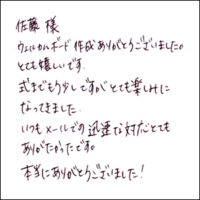 佐藤 様
ウェルカムボード 作成ありがとうございました。
とても嬉しいです。
式までもう少しですがとても楽しみに
なってきました。
いつもメールでの迅速な対応とても
ありがたかったです。
本当にありがとうございました!